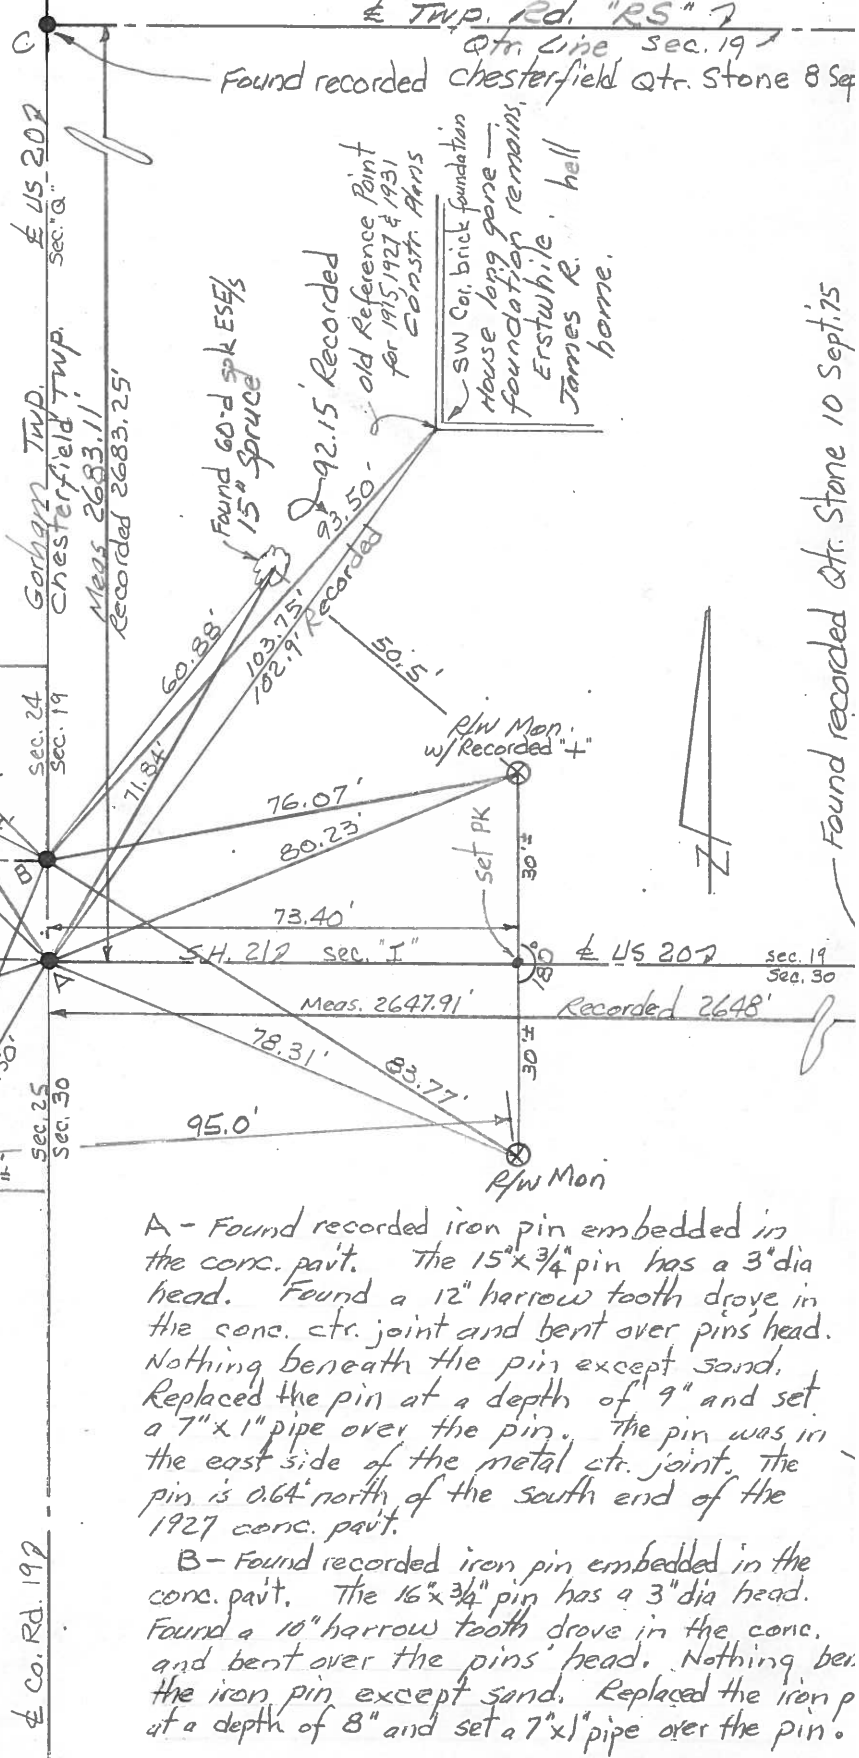 ℄ Twp. Rd. "RS"
Qtr. Line Sec. 19
C
Found recorded Chesterfield Qtr. Stone 8 Sep
℄ US 20
Sec. "Q"
Gorham Twp.
Chesterfield Twp.
Meas. 2683.11'
Recorded 2683.25'
Found 60-d spk ESE/s
15" Spruce
92.15' Recorded
old Reference Point
for 1915, 1927 & 1931
Constr. Plans
SW Cor. brick foundation
House long gone —
foundation remains,
Erstwhile
James R. hell
home.
Found recorded Qtr. Stone 10 Sept. 75
93.50'
60.88'
103.75'
102.9' Recorded
71.84'
50.5'
Sec. 24
Sec. 19
R/W Mon.
w/Recorded "+"
76.07'
80.23'
set PK
30'±
B
73.40'
S.H. 212 Sec. "I"
180°
℄ US 20
Sec. 19
Sec. 30
A
Meas. 2647.91'
Recorded 2648'
78.31'
83.77'
30'±
Sec. 25
Sec. 30
95.0'
R/W Mon
A - Found recorded iron pin embedded in
the conc. pav't. The 15"x 3/4" pin has a 3"dia
head. Found a 12" harrow tooth drove in
the conc. ctr. joint and bent over pins' head.
Nothing beneath the pin except sand.
Replaced the pin at a depth of 9" and set
a 7"x 1" pipe over the pin. The pin was in
the east side of the metal ctr. joint. The
pin is 0.64' north of the south end of the
1927 conc. pav't.
B - Found recorded iron pin embedded in the
conc. pav't. The 16"x 3/4" pin has a 3"dia head.
Found a 10" harrow tooth drove in the conc.
and bent over the pins' head. Nothing ben
the iron pin except sand. Replaced the iron p
at a depth of 8" and set a 7"x1" pipe over the pin.
℄ Co. Rd. 19